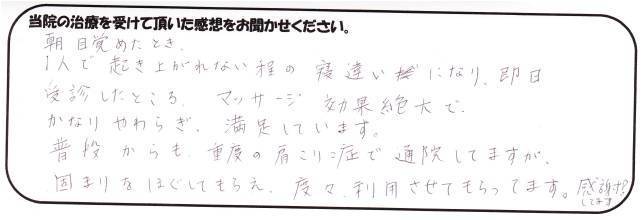 当院の治療を受けて頂いた感想をお聞かせください。
朝目覚めたとき、
1人で起き上がれない程の寝違いになり、即日
受診したところ、マッサージ効果絶大で、
かなりやわらぎ、満足しています。
普段からも、重度の肩こり症で通院してますが、
固まりをほぐしてもらえ、度々、利用させてもらってます。感謝
してます